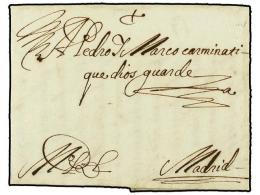 A Pedro Y Marco carminati
que dios guarde
Madrid